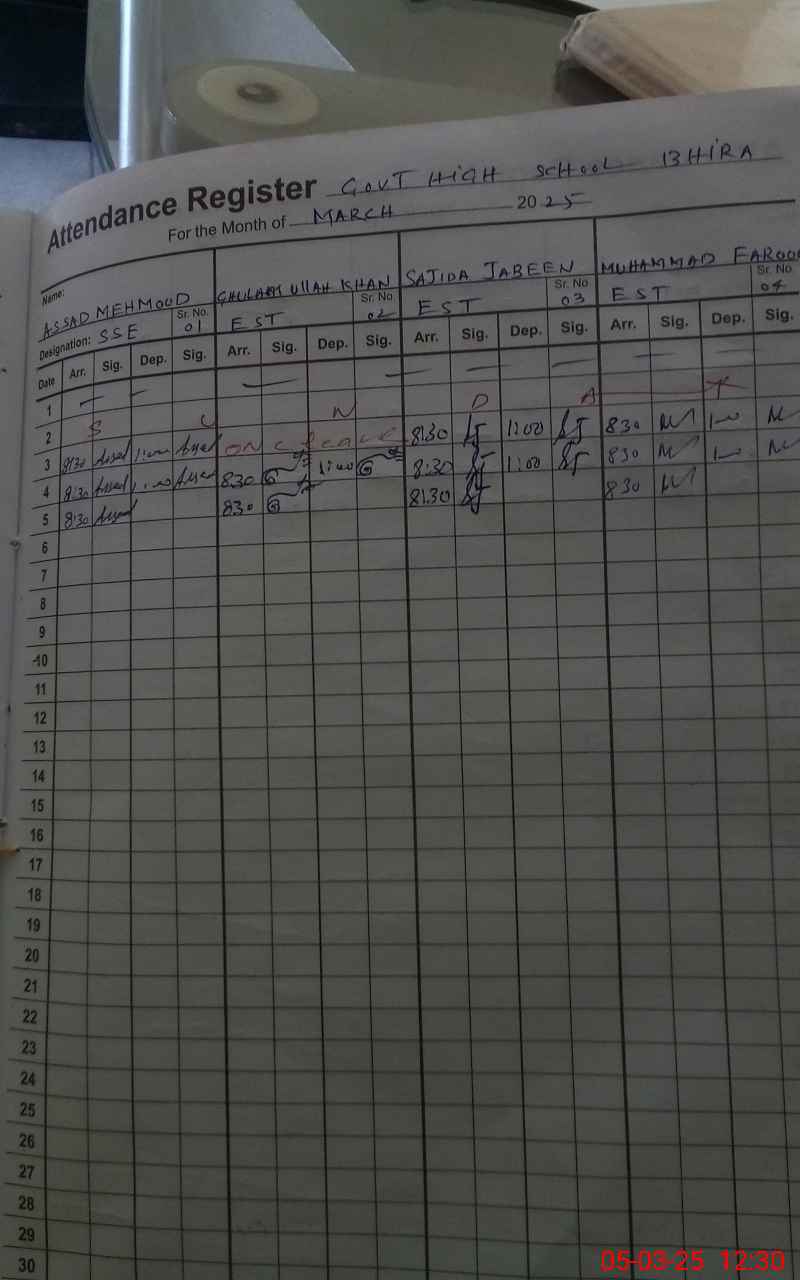 Attendance Register GOVT HIGH SCHOOL BHIRA
For the Month of MARCH 2025
Name: ASSAD MEHMOOD GHULAM ULLAH KHAN SAJIDA JABEEN MUHAMMAD FAROO
Designation: SSE Sr. No. 01 EST Sr. No. 02 EST Sr. No. 03 EST Sr. No. 04
Date Arr. Sig. Dep. Sig. Arr. Sig. Dep. Sig. Arr. Sig. Dep. Sig. Arr. Sig. Dep. Sig.
1
2 S U N D A Y
3 8:30 Assad 1:00 Assad on C leave 8:30 SJ 1:00 SJ 830 M 1:00 M
4 8:30 Assad 1:00 Assad 830 1:00 8:30 SJ 1:00 SJ 830 M 1:00 M
5 8:30 Assad 830 8:30 SJ 830 M
6
7
8
9
10
11
12
13
14
15
16
17
18
19
20
21
22
23
24
25
26
27
28
29
30
05-03-25 12:30